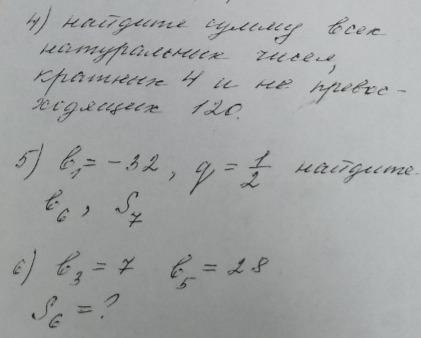 4) найдите сумму всех
натуральних чисел,
кратних 4 и не превос-
ходящих 120.
5) b₁ = -32, q = 1/2 найдите
b₆, S₇
6) b₃ = 7 b₅ = 28
S₆ = ?